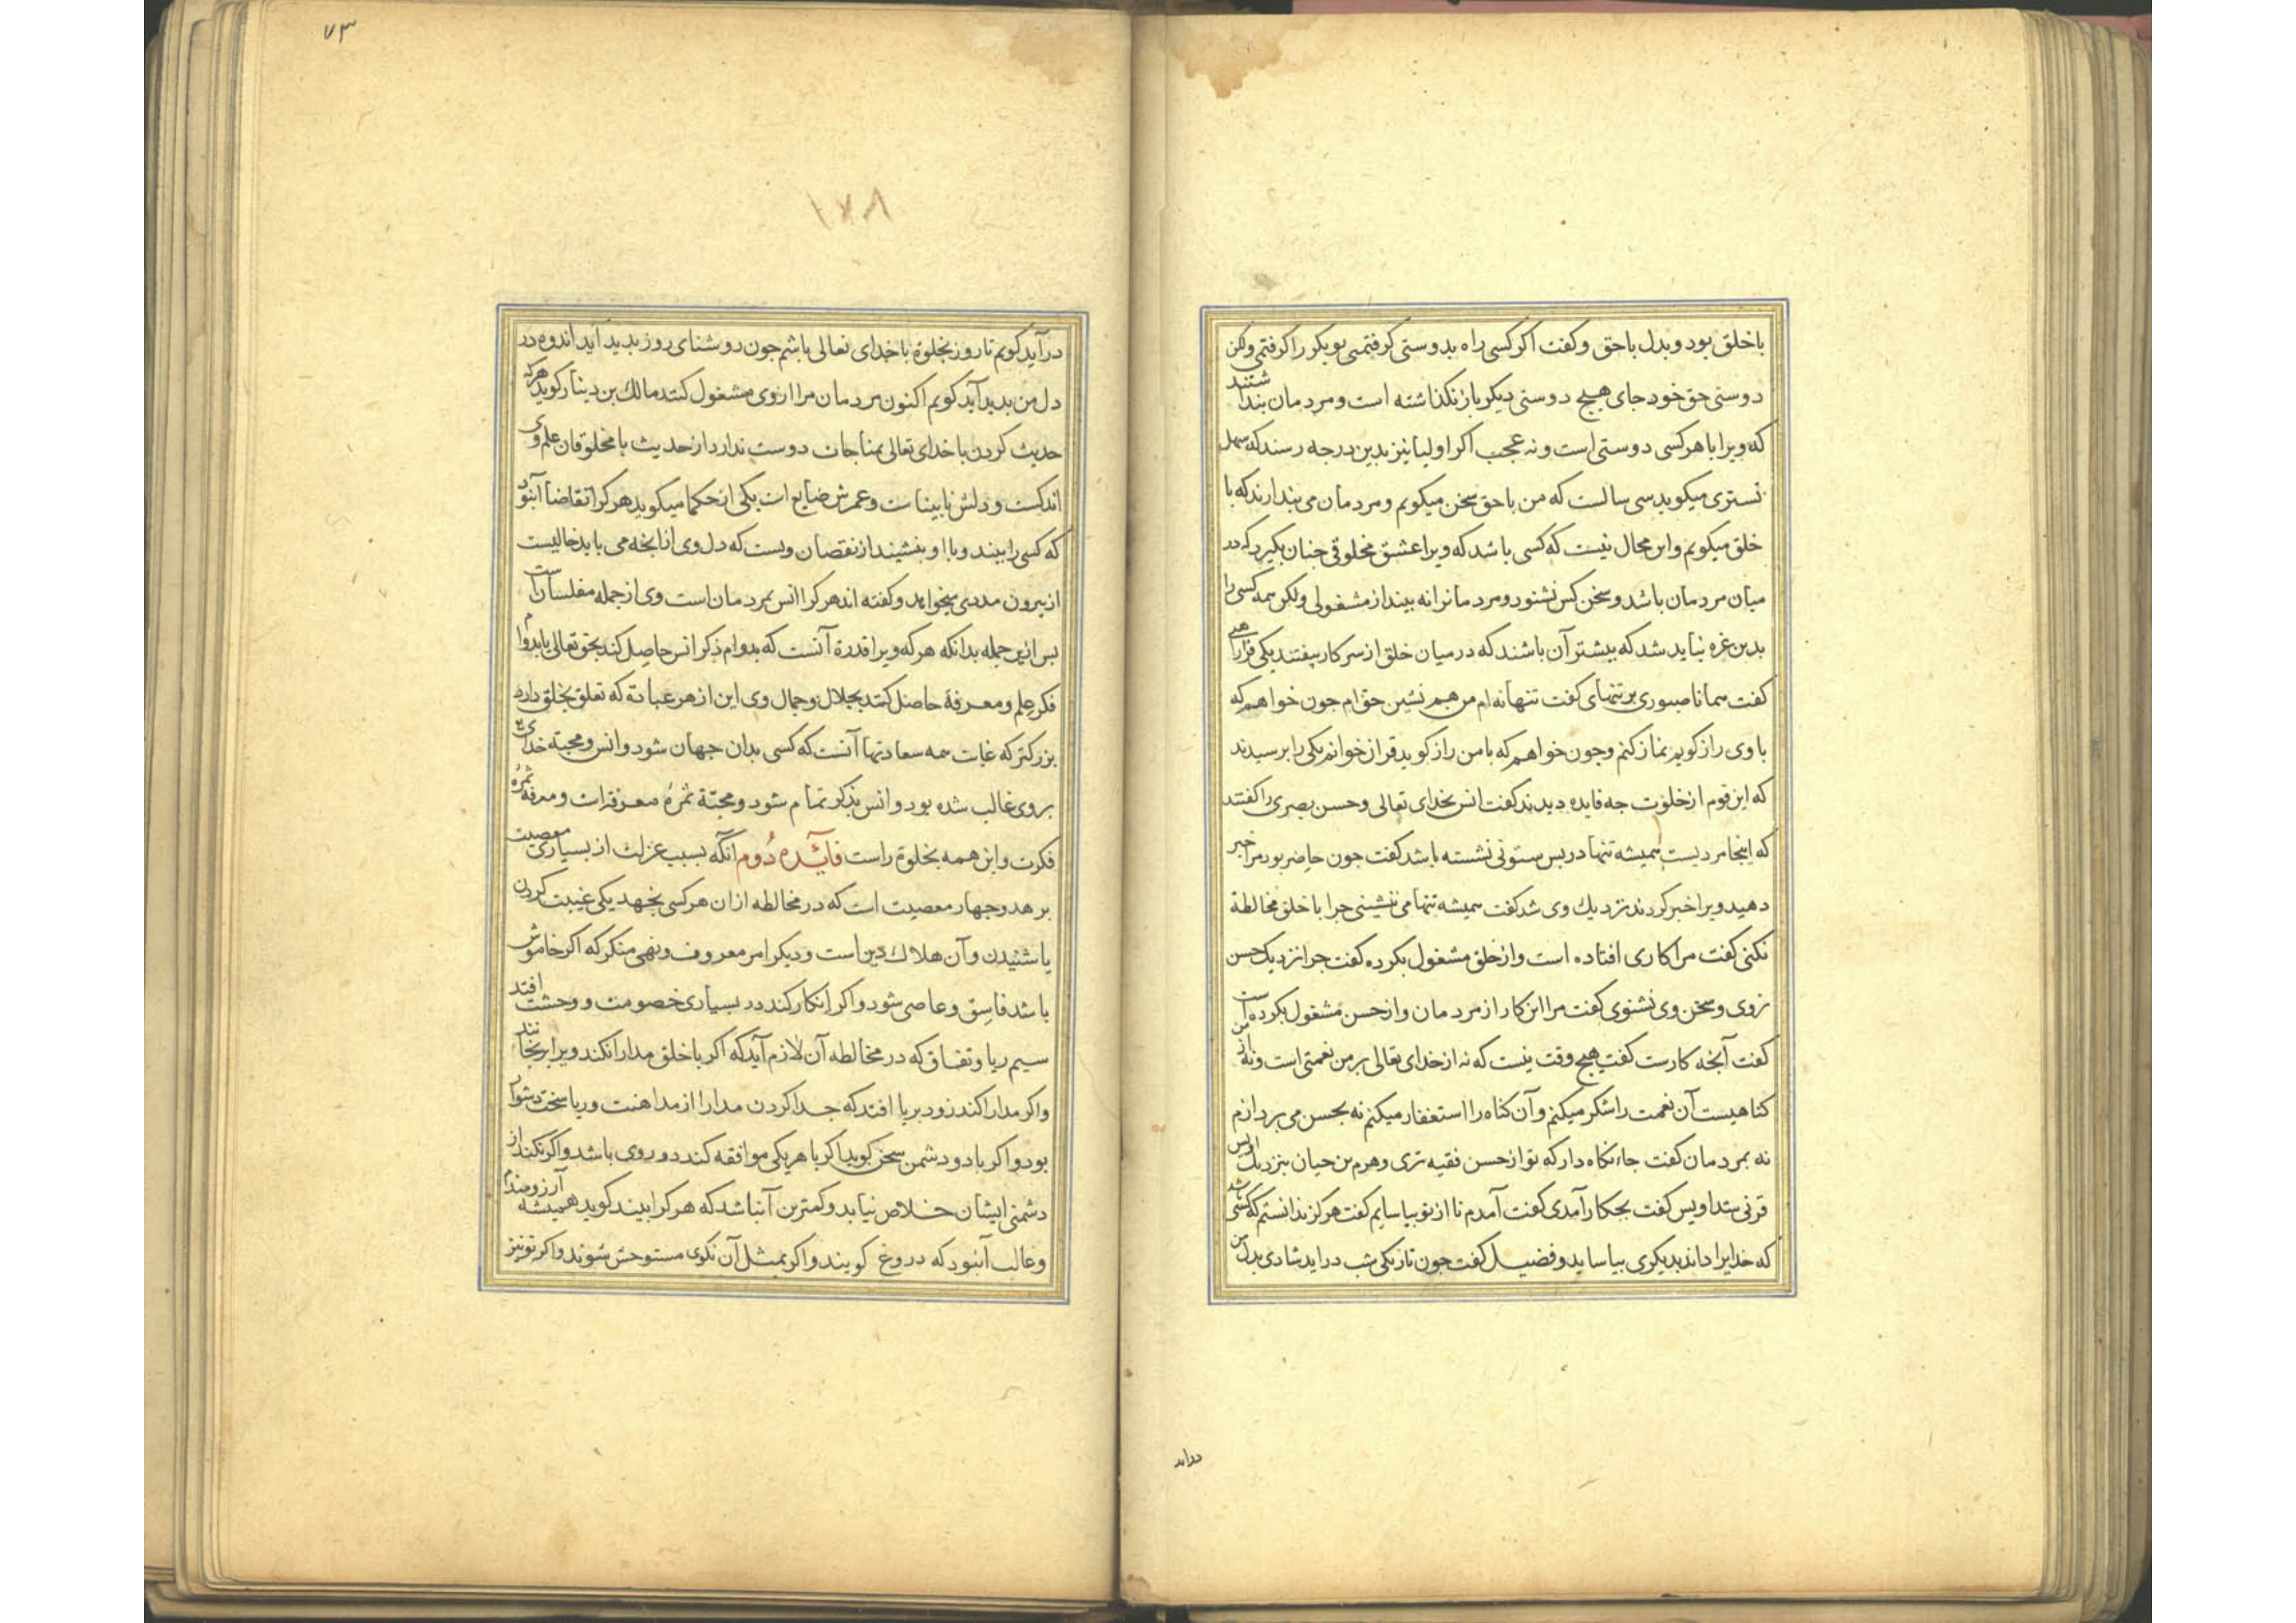 با خلق بود و بدل با حق و کفت اکر کسی راه بدوستی کرفتمی بوبکر را کرفتمی ولکن
دوستی حق خود جای هیچ دوستی دیکر باز نکذاشته است و مردمان بندا شتند
که ویرا با هر کسی دوستی است و نه عجب اکر اولیا نیز بدین درجه رسند که سهل
تستری میکوید سی سالست که من با حق سخن میکویم و مردمان می بندارند که با
خلق میکویم و این محال نیست که کسی باشد که ویرا عشق مخلوقی جنان بکیرد که در
میان مردمان باشد و سخن کس نشنود و مردمانرا نه بیند از مشغولی ولکن همه کسی را
بدین غره نباید شد که بیشتر آن باشند که در میان خلق از سر کار بیفتند یکی فرا راهبی
کفت همانا صبوری بر تنهای کفت تنها نه ام من هم نشین حق ام جون خواهم که
با وی راز کویم نماز کنم و جون خواهم که با من راز کوید قران خوانم یکی را برسیدند
که این قوم از خلوت جه فایده دیدند کفت انس بخدای تعالی و حسن بصری را کفتند
که اینجا مردیست همیشه تنها در بس ستونی نشسته باشد کفت جون حاضر بود مرا خبر
دهید ویرا خبر کردند نزدیك وی شد کفت همیشه تنها می نشینی جرا با خلق مخالطة
نکنی کفت مرا کاری افتاده است و از خلق مشغول بکرده کفت جرا نزدیك حسن
نروی و سخن وی نشنوی کفت مرا این کار از مردمان و از حسن مشغول بکرده است
کفت آنجه کارست کفت هیج وقت نیست که نه از خدای تعالی بر من نعمتی است و نه از من
کناهیست آن نعمت را شکر میکنم و آن کناه را استغفار میکنم نه بحسن می بردازم
نه بمردمان کفت جاء نکاه دار که تو از حسن فقیه تری و هرم بن حیان بنزدیك اویس
قرنی شد اویس کفت بجکار آمدی کفت آمدم تا از تو بیاسایم کفت هرکز ندانستم که کسی باشد
که خدایرا داند بدیکری بیاساید و فضیل کفت جون تاریکی شب دراید شادی بدل من
دراید
٧٣
درآید کویم تا روز بخلوة با خدای تعالی باشم جون روشنای روز بدید آید اندوه در
دل من بدید آید کویم اکنون مردمان مرا از وی مشغول کنند مالك بن دینار کوید هر که
حدیث کردن با خدای تعالی بمناجات دوست ندارد از حدیث با مخلوقان علم وی
اندکست و دلش نابیناست و عمرش ضایع است یکی از حکما میکوید هر کرا تقاضا آن بود
که کسی را بیند و با او بنشیند از نقصان ویست که دل وی از انجه می باید خالیست
از بیرون مددی میخواهد و کفته اند هر کرا انس بمردمان است وی از جمله مفلسان است
بس ازین جمله بدانکه هر که ویرا قدرة آنست که بدوام ذکر انس حاصل کند بحق تعالی یا بدوام
فکر علم و معرفة حاصل کند بجلال و جمال وی این از هر عبادة که تعلق بخلق دارد
بزرکتر که غایت همه سعادتها آنست که کسی بدان جهان شود و انس و محبة خدای
بر وی غالب شده بود و انس بذکر تمام شود و محبة ثمرهٔ معرفت است و معرفة ثمرهٔ
فکرت و این همه بخلوة راست فائده دوم آنکه بسبب عزلت از بسیاری معصیت
برهد و جهار معصیت است که در مخالطه از ان هر کسی نجهد یکی غیبت کردن
یا شنیدن و آن هلاك دین است و دیکر امر معروف و نهی منکر که اکر خاموش
باشد فاسق و عاصی شود و اکر انکار کند در بسیاری خصومت و وحشت افتد
سیم ریا و نفاق که در مخالطه آن لازم آید که اکر با خلق مدارا نکند ویرا برنجانند
و اکر مدارا کند زود بریا افتد که جدا کردن مدارا از مداهنت و ریا سخت دشوار
بود و اکر با دو دشمن سخن کوید اکر با هر یکی موافقه کند دو روی باشد و اکر نکند از
دشمنی ایشان خلاص نیابد و کمترین آن باشد که هر کرا بیند کوید همیشه آرزومندم
و غالب آن بود که دروغ کویند و اکر بمثل آن نکوی مستوحش شوند و اکر تو نیز